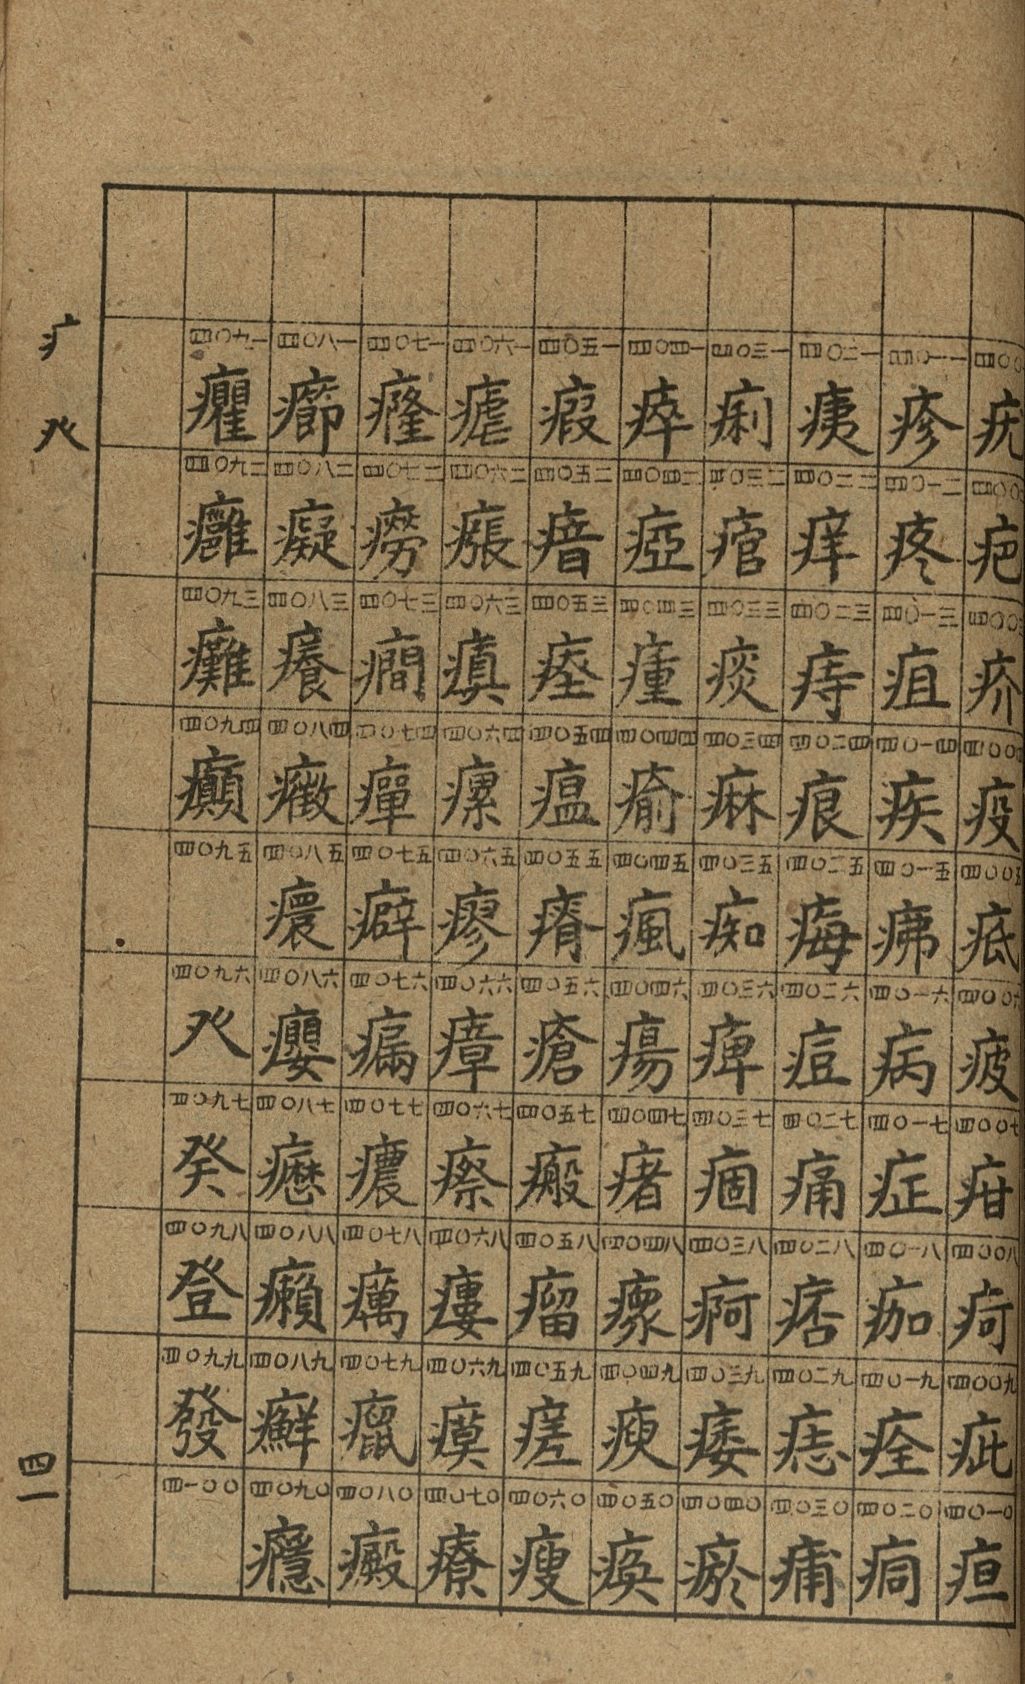 疒 癶
四一
四〇〇 疣
四〇〇 疤
四〇〇 疥
四〇〇 疫
四〇〇五 疷
四〇〇六 疲
四〇〇七 疳
四〇〇八 疴
四〇〇九 疵
四〇一〇 疸
四〇一一 疹
四〇一二 疼
四〇一三 疽
四〇一四 疾
四〇一五 疿
四〇一六 病
四〇一七 症
四〇一八 痂
四〇一九 痊
四〇二〇 痌
四〇二一 痍
四〇二二 痒
四〇二三 痔
四〇二四 痕
四〇二五 痗
四〇二六 痘
四〇二七 痛
四〇二八 痞
四〇二九 痣
四〇三〇 痡
四〇三一 痢
四〇三二 痯
四〇三三 痰
四〇三四 痳
四〇三五 痴
四〇三六 痺
四〇三七 痼
四〇三八 痾
四〇三九 痿
四〇四〇 瘀
四〇四一 瘁
四〇四二 瘂
四〇四三 瘇
四〇四四 瘉
四〇四五 瘋
四〇四六 瘍
四〇四七 瘏
四〇四八 瘃
四〇四九 瘐
四〇五〇 瘓
四〇五一 瘕
四〇五二 瘖
四〇五三 瘞
四〇五四 瘟
四〇五五 瘠
四〇五六 瘡
四〇五七 瘢
四〇五八 瘤
四〇五九 瘥
四〇六〇 瘦
四〇六一 瘧
四〇六二 瘬
四〇六三 瘨
四〇六四 瘰
四〇六五 瘳
四〇六六 瘴
四〇六七 瘵
四〇六八 瘻
四〇六九 瘼
四〇七〇 療
四〇七一 癃
四〇七二 癆
四〇七三 癇
四〇七四 癉
四〇七五 癖
四〇七六 瘺
四〇七七 癑
四〇七八 癘
四〇七九 癙
四〇八〇 癜
四〇八一 癤
四〇八二 癡
四〇八三 癢
四〇八四 癥
四〇八五 癏
四〇八六 癭
四〇八七 癧
四〇八八 癩
四〇八九 癬
四〇九〇 癮
四〇九一 癯
四〇九二 癰
四〇九三 癱
四〇九四 癲
四〇九五
四〇九六 癶
四〇九七 癸
四〇九八 登
四〇九九 發
四一〇〇